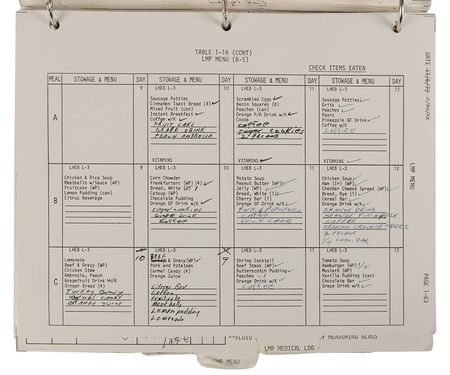 TABLE 1-16 (CONT)
LMP MENU (8-5)
CHECK ITEMS EATEN
DATE
MEAL STOWAGE & MENU DAY STOWAGE & MENU DAY STOWAGE & MENU DAY STOWAGE & MENU DAY
A
LHEB L-3 9
LHEB L-3 10
Sausage Patties
Cinnamon Toast Bread (4)✓
Mixed Fruit (can)
Instant Breakfast ✓
Coffee W/K
FRUIT CAKE
GRAPE DRINK
PEACH AMBROSIA
LHEB L-3 11
Scrambled Eggs ✓
Bacon Squares (8)
Peaches (can)
Orange P/A Drink W/K ✓
Cocoa
COFFEE
SUGAR COOKIES
2 PECANS
VITAMINS ✓
LHEB L-3 12
Sausage Patties ✓
Grits ✓
Peaches ✓
Pears
Pineapple GF Drink ✓
Coffee W/K
COFFEE
VITAMINS ✓
B
LHEB L-3
Chicken & Rice Soup
Meatballs w/Sauce (WP)
Fruitcake (WP)
Lemon Pudding (can)
Citrus Beverage
LHEB L-3
Corn Chowder
Frankfurters (WP)(4)✓
Bread, White (1)
Catsup (WP)
Chocolate Pudding
Orange GF Drink W/K ✓
COFFEE
LHEB L-3
Potato Soup
Peanut Butter (WP) ✓
Jelly (WP) ✓
Bread, White (1)
Cherry Bar (1)
Orange GF Drink W/K ✓
PORK & POTATOES
COFFEE
FRUIT CAKE
LHEB L-3
Chicken Soup ✓
Ham (Ir) (WP) ✓
Cheddar Cheese Spread (WP)
Bread, Rye (1)
Cereal Bar ✓
Orange GF Drink W/K
ORANGE DRINK
COFFEE
GRAHAM CRACKER CUBES
2 PECANS
LMP MENU
LHEB L-3 10
Lemonade
Beef & Gravy (WP)
Chicken Stew
Ambrosia, Peach
Grapefruit Drink W/K
Ginger Bread (4)
TURKEY GRAVY
CANDY
ORANGE JUICE
LHEB L-3 9
BEEF & Gravy(WP) ✓
Pork and Potatoes
Carmel Candy (4)
Orange Juice
Coffee
Fruitcake
Meatballs
Lemon pudding
Lemonade
LHEB L-3
Shrimp Cocktail
Beef Steak (WP) ✓
Butterscotch Pudding ✓
Peaches ✓
Orange Drink W/K ✓
COFFEE
LHEB L-3
Tomato Soup
Hamburger (WP) ✓
Mustard (WP)
Vanilla Pudding (can)
Chocolate Bar
Grape Drink W/K ✓
PAGE 1-63
MEASURING GLASS
LMP MEDICAL LOG
LMP MENU